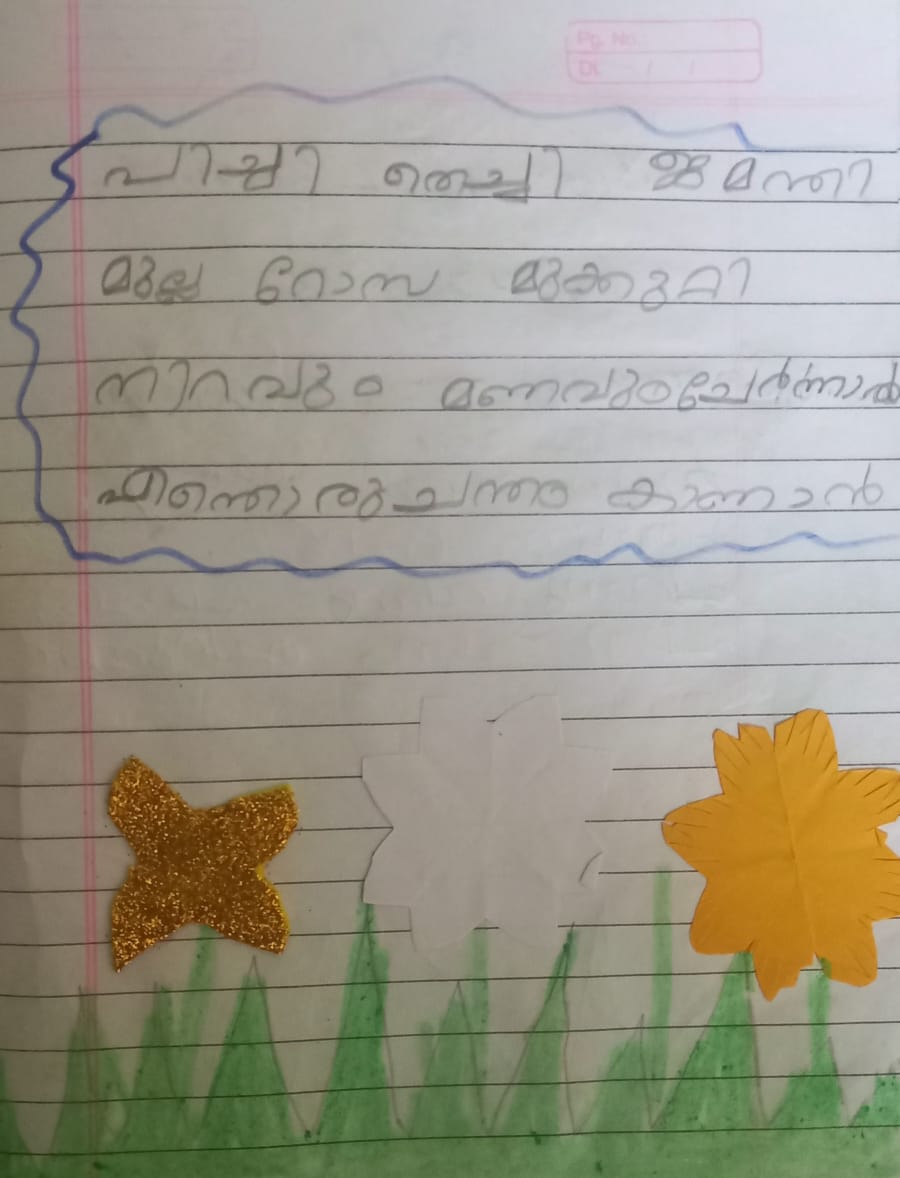 Pg. No.
Dt. / /
പിച്ചി തെച്ചി ജമന്തി
മുല്ല റോസ മുക്കുറ്റി
നിറവും മണവുംചേർന്നാൽ
എന്തൊരുചന്തം കാണാൻ